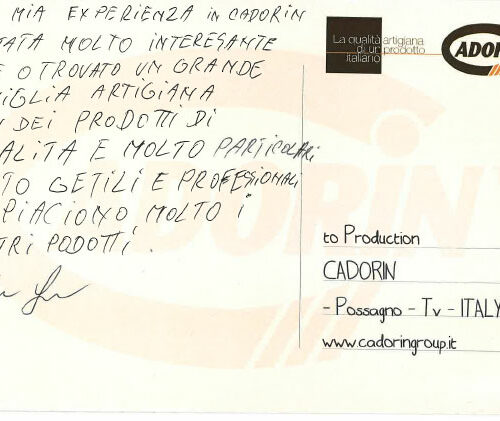 MIA EXPERIENZA IN CADORIN
TATA MOLTO INTERESANTE
E O TROVATO UN GRANDE
IGLIA ARTIGIANA
DEI PRODOTTI DI
ALITA E MOLTO PARTICOLARI
TO GETILI E PROFESSIONALI
PIACIONO MOLTO I
TRI PODOTTI.
La qualità artigiana
di un prodotto
italiano
ADOR
DORIN
to Production
CADORIN
- Possagno - Tv - ITALY
www.cadoringroup.it